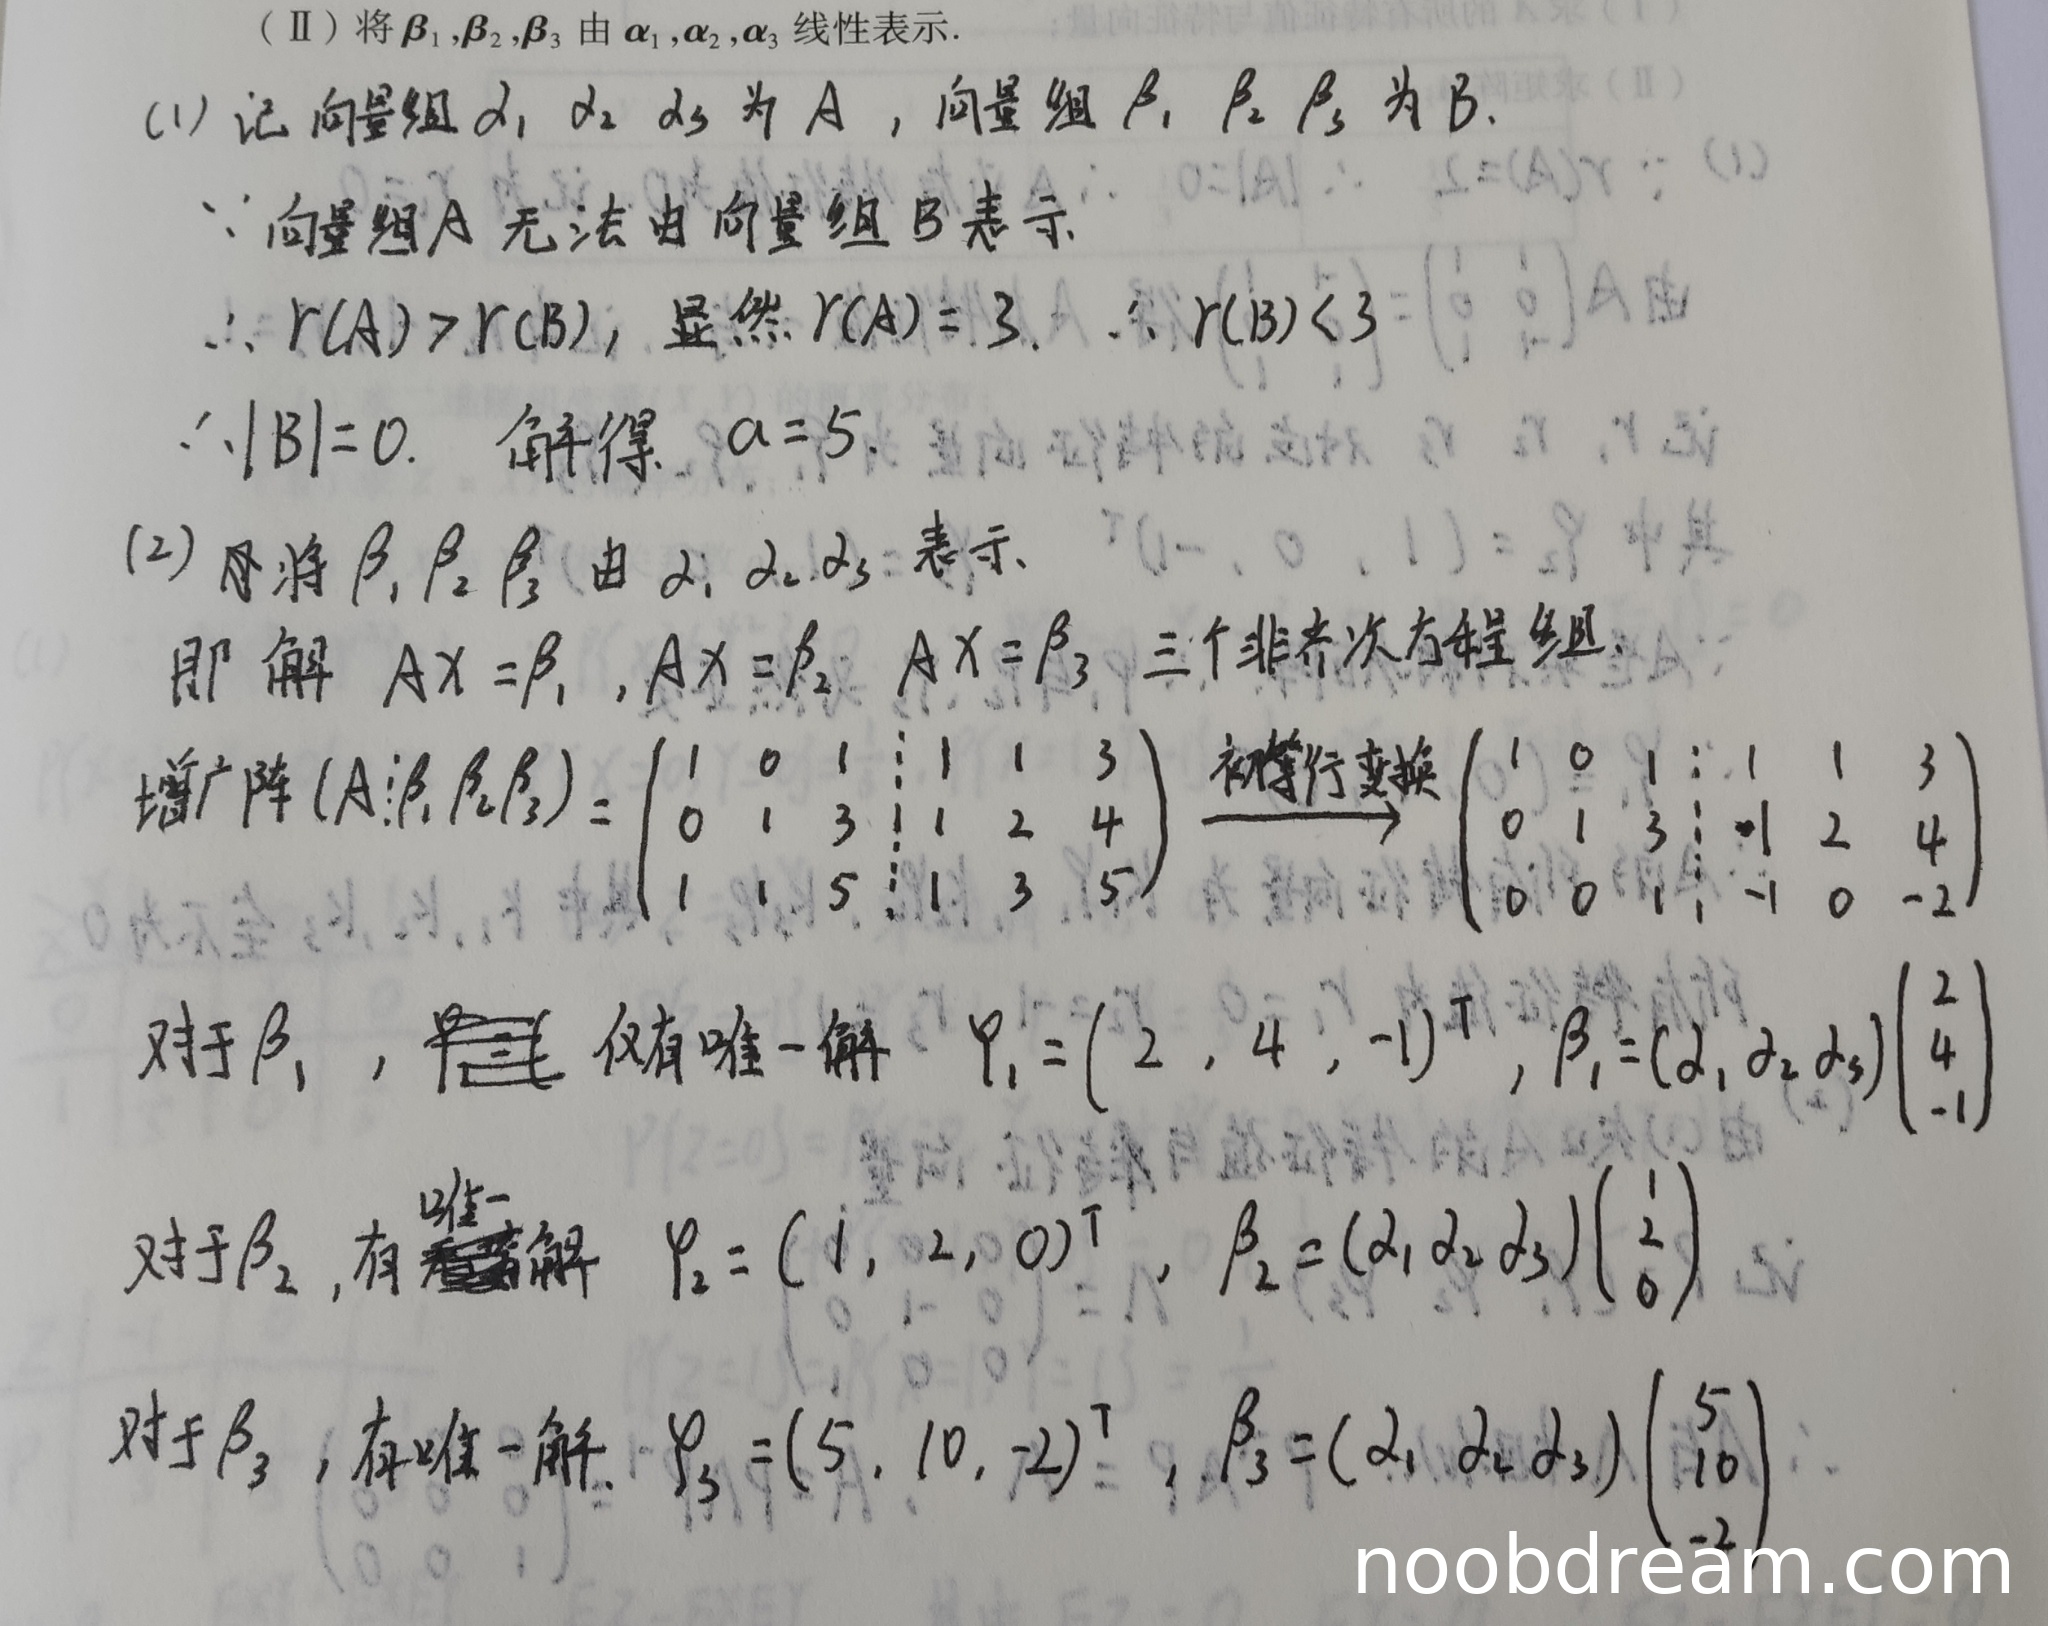 （Ⅱ）将 β₁,β₂,β₃ 由 α₁,α₂,α₃ 线性表示.
(1) 记向量组 α₁ α₂ α₃ 为 A , 向量组 β₁ β₂ β₃ 为 B.
∵ 向量组A 无法由向量组 B 表示
∴ r(A) > r(B), 显然 r(A) = 3. ∴ r(B) < 3
∴ |B| = 0. 解得 a = 5.
(2) 将 β₁ β₂ β₃ 由 α₁ α₂ α₃ 表示.
即解 AX = β₁ , AX = β₂ AX = β₃ 三个非齐次方程组.
增广阵 (A⋮β₁ β₂ β₃) = ( 1 0 1 ⋮ 1 1 3 初等行变换 → ( 1 0 1 ⋮ 1 1 3
0 1 3 ⋮ 1 2 4 0 1 3 ⋮ 1 2 4
1 1 5 ⋮ 1 3 5 ) 0 0 1 ⋮ -1 0 -2 )
对于 β₁ , 仅有唯一解 φ₁ = ( 2 , 4 , -1)ᵀ , β₁ = (α₁ α₂ α₃) ( 2 4 -1 )
对于 β₂ , 有唯一解 φ₂ = ( 1, 2, 0)ᵀ , β₂ = (α₁ α₂ α₃) ( 1 2 0 )
对于 β₃ , 有唯一解. φ₃ = (5, 10, -2)ᵀ , β₃ = (α₁ α₂ α₃) ( 5 10 -2 )
noobdream.com